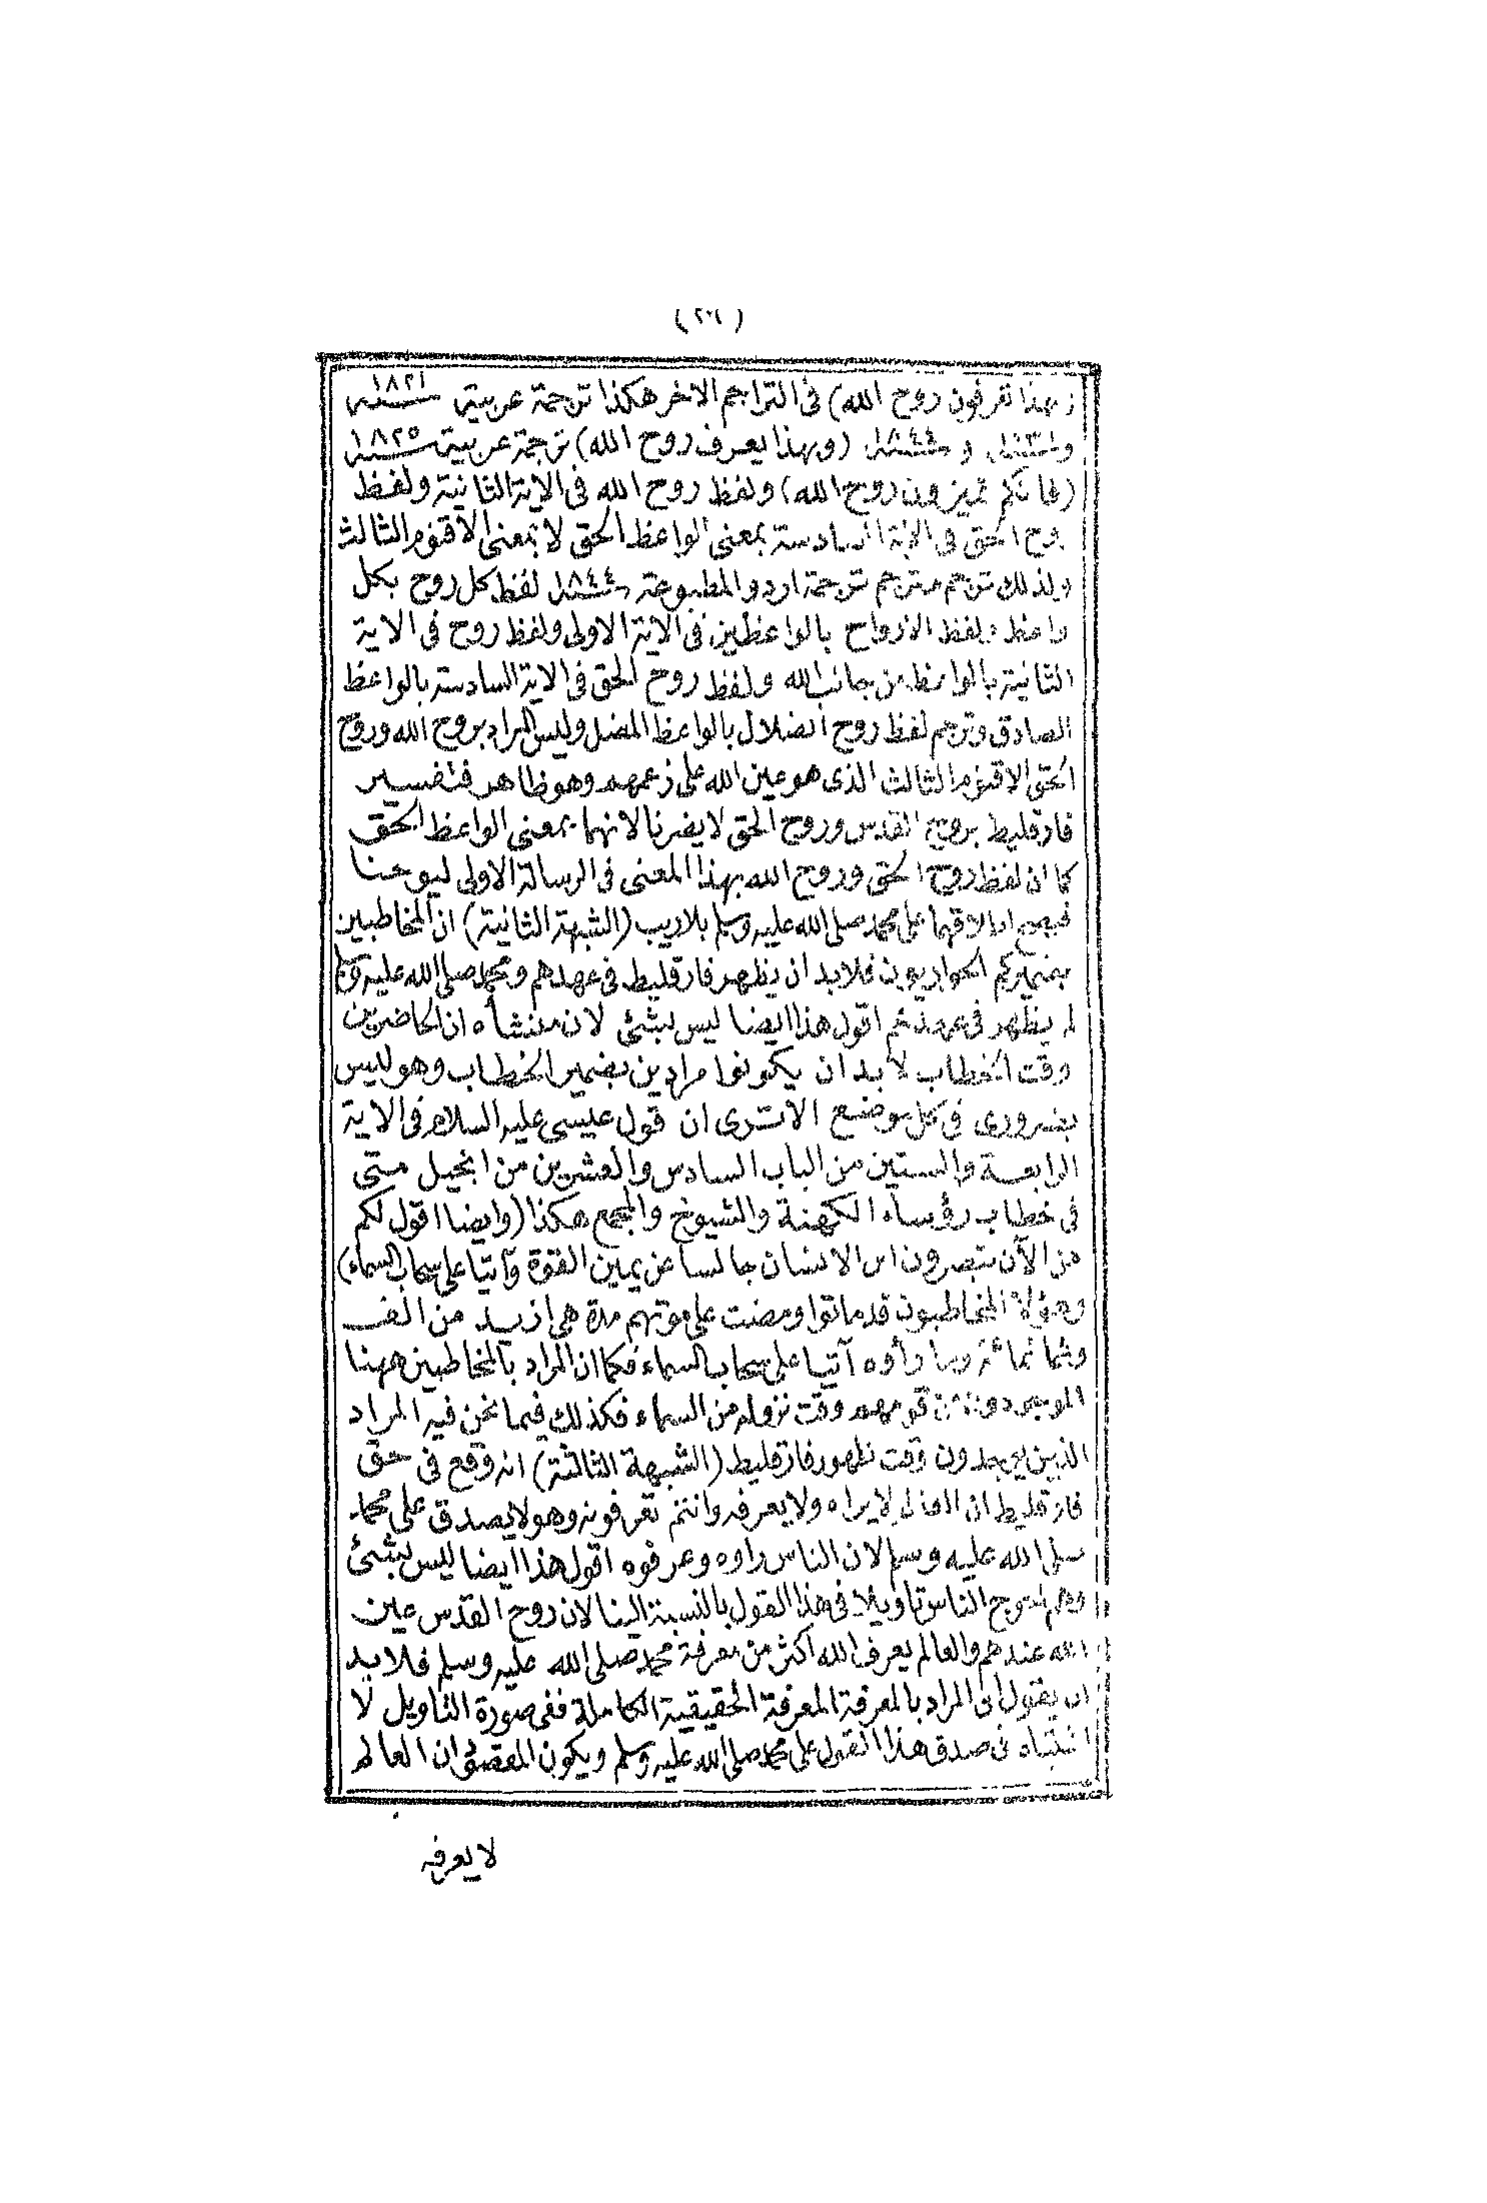 (٢٠٦)
(بهذا تعرفون روح الله) فى التراجم الاخر هكذا ترجمة عربية سنة ١٨٢١
و سنة ١٨٣١ و سنة ١٨٤٤ (وبهذا يعرف روح الله) ترجمة عربية سنة ١٨٢٥
(فانكم تميزون روح الله) ولفظ روح الله فى الاية الثانية ولفظ
روح الحق فى الاية السادسة بمعنى الواعظ الحق لا بمعنى الاقنوم الثالث
ولذلك ترجم مترجم ترجمة اردو المطبوعة سنة ١٨٤٤ لفظ كل روح بكل
واعظ ولفظ الارواح بالواعظين فى الاية الاولى ولفظ روح فى الاية
الثانية بالواعظ من جانب الله ولفظ روح الحق فى الاية السادسة بالواعظ
الصادق وترجم لفظ روح الضلال بالواعظ المضل وليس المراد بروح الله وروح
الحق الاقنوم الثالث الذى هو عين الله على زعمهم وهو ظاهر فتفسير
فارقليط بروح القدس وروح الحق لا يضرنا لانهما بمعنى الواعظ الحق
كما ان لفظ روح الحق وروح الله بهذا المعنى فى الرسالة الاولى ليوحنا
فيصح اطلاقهما على محمد صلى الله عليه وسلم بلا ريب (الشبهة الثانية) ان المخاطبين
بضميركم الحواريون فلا بد ان يظهر فارقليط فى عهدهم ومحمد صلى الله عليه وسلم
لم يظهر فى عهدهم اقول هذا ايضا ليس بشئ لان منشأه ان الحاضرين
وقت الخطاب لا بد ان يكونوا مرادين بضمير الخطاب وهو ليس
بضرورى فى كل موضع الا ترى ان قول عيسى عليه السلام فى الاية
الرابعة والستين من الباب السادس والعشرين من انجيل متى
فى خطاب رؤساء الكهنة والشيوخ والمجمع هكذا (وايضا اقول لكم
من الآن تبصرون ابن الانسان جالسا عن يمين القوة وآتيا على سحاب السماء)
وهؤلاء المخاطبون قد ماتوا ومضت على موتهم مدة هى ازيد من الف
وثمانمائة وما رأوه آتيا على سحاب السماء فكما ان المراد بالمخاطبين ههنا
الموجودون من قومهم وقت نزوله من السماء فكذلك فيما نحن فيه المراد
الذين يوجدون وقت ظهور فارقليط (الشبهة الثالثة) انه وقع فى حق
فارقليط ان العالم لا يراه ولا يعرفه وانتم تعرفونه وهو لا يصدق على محمد
صلى الله عليه وسلم لان الناس راوه وعرفوه اقول هذا ايضا ليس بشئ
وهم احوج الناس تاويلا فى هذا القول بالنسبة الينا لان روح القدس عين
الله عندهم والعالم يعرف الله اكثر من معرفة محمد صلى الله عليه وسلم فلا بد
ان يقول ان المراد بالمعرفة المعرفة الحقيقية الكاملة ففى صورة التاويل لا
اشتباه فى صدق هذا القول على محمد صلى الله عليه وسلم ويكون المقصود ان العالم
لا يعرفه